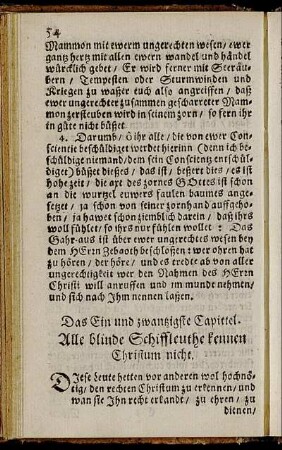 54
Mammon mit ewerm ungerechten wesen / ewer
gantz hertz mit allen ewern wandel und händel
würcklich gebet / Er wird ferner mit Seeräu-
bern / Tempesten oder Sturmwinden und
Kriegen zu waßer euch also angreiffen / daß
ewer ungerechter zusammen gescharreter Mam-
mon zerstieuben wird in seinem zorn / so fern ihr
in güte nicht büßet
4. Darumb / ô ihr alle / die von ewer Con-
scientie beschüldiget werdet hierinn (denn ich be-
schüldige niemand / dem sein Conscientz entschül-
diget) büßet dießes / das ist / bestere dies / es ist
hohe zeit / die axt des zornes GOttes ist schon
an die wurtzel euwers faulen baumes ange-
setzet / ja schon von seiner zornhand auffgeho-
ben / ja hawet schon ziemblich darein / daß ihrs
woll fühlet / so ihrs nur fühlen wollet : Das
Gahr-aus ist über ewer ungerechtes wesen bey
dem HErn Zebaoth beschloßen : wer ohren hat
zu hören / der höre / und es trette ab von aller
ungerechtigkeit wer den Nahmen des HErrn
Christi will anruffen und im munde nehmen /
und sich nach Ihm nennen laßen.
Das Ein und zwantzigste Capittel.
Alle blinde Schiffleuthe kennen
Christum nicht.
DIese Leute hetten vor anderen wol höchnö-
tig / den rechten Christum zu erkennen / und
wan sie Ihn recht erkandt / zu ehren / zu
dienen /